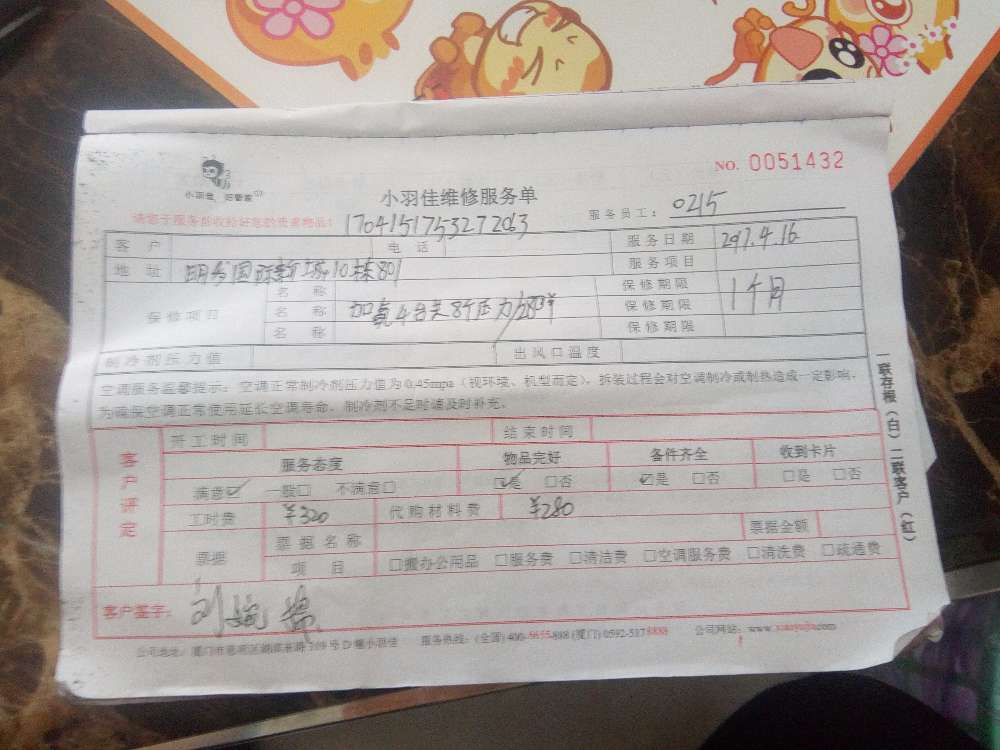 小羽佳 好管家
NO. 0051432
小羽佳维修服务单
服务员工: 0215
请您于服务前收拾好您的贵重物品!
客户 电话 服务日期 2017.4.16
地址 明发国际新城10栋801 服务项目
保修项目 名称 保修期限 1个月
名称 加氟4台共8个压力/280元 保修期限
名称 保修期限
制冷剂压力值 出风口温度
空调服务温馨提示: 空调正常制冷剂压力值为0.45mpa (视环境、机型而定), 拆装过程会对空调制冷或制热造成一定影响,
为确保空调正常使用延长空调寿命, 制冷剂不足时请及时补充。
客户评定
开工时间 结束时间
服务态度 物品完好 备件齐全 收到卡片
满意☑ 一般□ 不满意□ ☑是 □否 ☑是 □否 □是 □否
工时费 ¥320 代购材料费 ¥280
票据 票据名称 票据金额
项目 □搬办公用品 □服务费 □清洁费 □空调服务费 □清洗费 □疏通费
客户签字:
服务热线: (全国) 400-5655-898 (厦门) 0592-5178888 公司网站: www.xiaoyujia.com
一联存根(白) 二联客户(红)